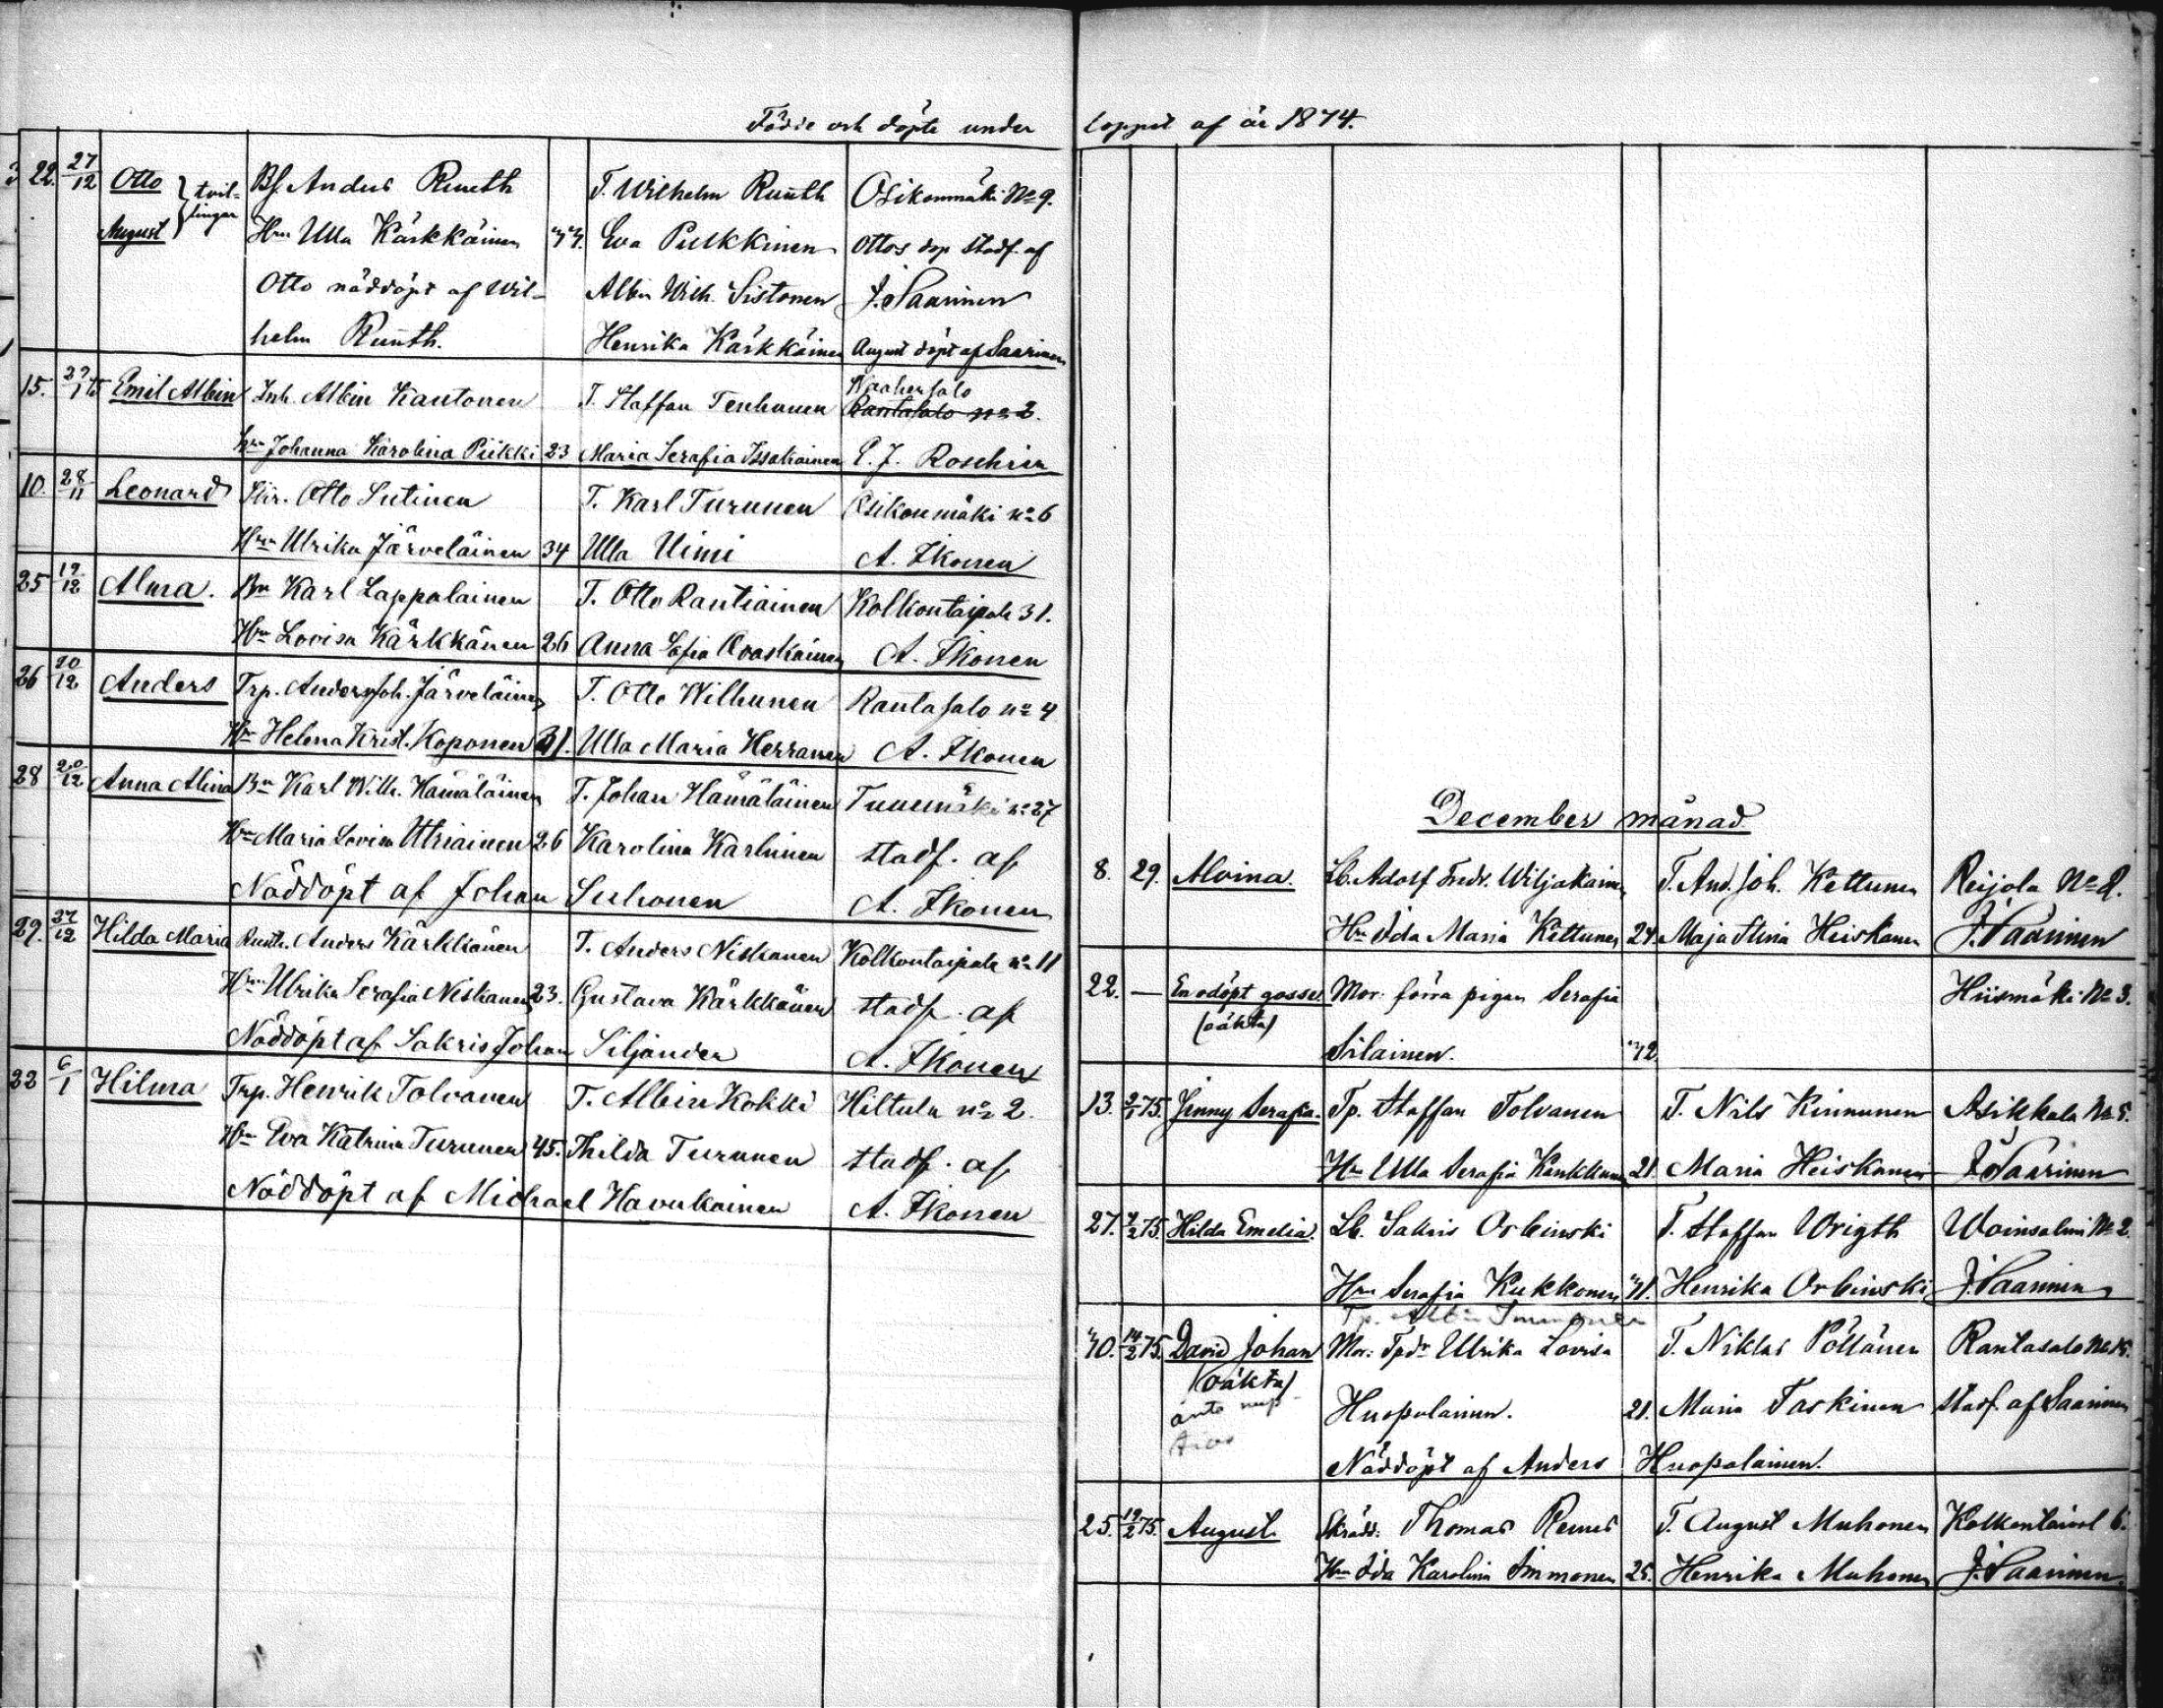 Födde och döpte under loppet af år 1874.
22. 27/12 Otto } tvil- Bs. Anders Ruuth T. Wilhelm Ruuth Osikonmäki No 9.
August } lingar Hru Ulla Kärkkäinen 33. Eva Pulkkinen Ottos dop stadf. af
Otto nöddöpt af Wil- Albin Wilh. Sistonen J. Saarinen
helm Ruuth. Henrika Kärkkäinen August döpt af Saarinen
Naahensalo
15. 1/75 Emil Albin Inh. Albin Kautonen T. Staffan Tenhunen Rantasalo no 2.
Hru Johanna Karolina Piikki 23 Maria Serafia Issakainen E. J. Roschier
10. 28/11 Leonard Otto Sutinen T. Karl Turunen Osikonmäki no 6
Hru Ulrika Järveläinen 34 Ulla Uimi A. Ikonen
25 19/12 Alma. Bn Karl Lappalainen T. Otto Rantiainen Kolkontaipale 31.
Hru Lovisa Kärkkänen 26 Anna Sofia Ovaskainen A. Ikonen
26 20/12 Anders Trp. Anders Joh. Järveläinen T. Otto Wilhunen Rantasalo no 4
Hru Helena Krist. Koponen 31. Ulla Maria Herranen A. Ikonen
28 20/12 Anna Alina Bn Karl Wilh. Hämäläinen T. Johan Hämäläinen Tuusmäki no 27
Hru Maria Lovisa Utriainen 26 Karolina Karhinen stadf. af
Nöddöpt af Johan Suhonen A. Ikonen
29. 27/12 Hilda Maria Anders Kärkkänen T. Anders Niskanen Kolkontaipale no 11
Hru Ulrika Serafia Niskanen 23. Gustava Kärkkänen stadf. af
Nöddöpt af Sakris Johan Siljander A. Ikonen
22 6/1 Hilma Trp. Henrik Tolvanen T. Albin Kokki Hiltula no 2.
Hru Eva Katrina Turunen 45. Thilda Turunen stadf. af
Nöddöpt af Michael Havukainen A. Ikonen
December månad.
8. 29. Alvina. Lb. Adolf Fredr. Wiljakainen T. And. Joh. Kettunen Reijola No 2.
Hru Ida Maria Kettunen 24. Maja Stina Heiskanen J. Saarinen
22. — En odöpt gosse Mor: förra pigan Serafia Hiismäki No 3.
(oäkta) Silainen. 32.
13. 2/1 75. Jenny Serafia. Tp. Staffan Tolvanen T. Nils Kinnunen Asikkala No 5.
Hru Ulla Serafia Kankkunen 21. Maria Heiskanen J. Saarinen
27. 7/2 75. Hilda Emelia. Lb. Sakris Orbinski T. Staffan Wrigth Woinsalmi No 2.
Hru Serafia Kukkonen 31. Henrika Orbinski J. Saarinen
Tp. Albin Immonen
30. 14/2 75. David Johan Mor: Tpdr Ulrika Lovisa T. Niklas Pöllänen Rantasalo No 15.
(oäkta)
ante nup. Huopalainen. 21. Maria Taskinen stadf. af Saarinen
Nöddöpt af Anders Huopalainen.
25. 19/2 75. August Skrädd: Thomas Remes T. August Muhonen Kolkontaipal 6.
Hru Ida Karolina Immonen 25. Henrika Muhonen J. Saarinen.